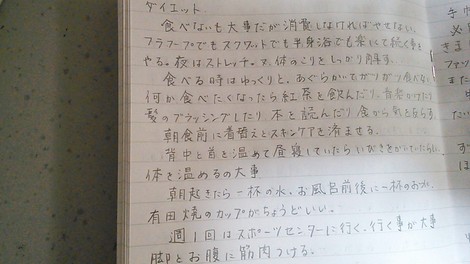 ダイエット
食べないも大事だが消費しなければやせない。
フラフープでもスクワットでも半身浴でも楽にて続く事を
やる。夜はストレッチ。で、体のこりをしっかり解す。
食べる時はゆっくりと。あぐらかいてガツガツ食べない。
何か食べたくなったら紅茶を飲んだり、音楽かけたり
髪のブラッシングしたり本を読んだり食から気をそらす。
朝食前に着替えとスキンケアを済ませる。
背中と首を温めて昼寝していたらいびきをかいていたらしい。
体を温めるの大事
朝起きたら一杯の水。お風呂前後に一杯のお水。
有田焼のカップがちょうどいい。
週1回はスポーツセンターに行く。行く事が大事
脚とお腹に筋肉つける。